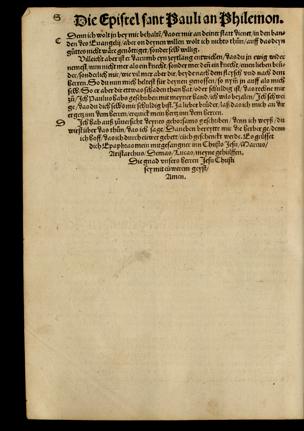 Die Epistel sant Pauli an Philemon.
Denn ich wolt jn bey mir behalten, das er mir an deiner statt dienet, in den banden
C des Evangelij, aber on deynen willen wolt ich nichts thůn, auff das dein
gůttes nicht wäre genöttiget, sonder selb willig.
Villeicht aber ist er darumb eyn zeytlang entwichen, das du jn ewig wider
nemest, nun nicht mer als eyn knecht, sonder mer den ein knecht, einen lieben brůder,
sonderlich mir, wie vil mer aber dir, beyde nach dem fleysch und nach dem
Herren. So du nun mich heltest für deynen genossen, so nym jn auff als mich
selb. So er aber dir etwas schaden than hat, oder schuldig ist, das rechne mir
zů, Ich Paulus habs geschriben mit meyner hand, ich wils bezalen, Ich schweyge,
das du dich selbs mir schuldig bist. Ja lieber brůder, laß das ich mich an dir
ergetz inn dem herren, erquick mein hertz inn dem herren.
D Ich hab auß zůversicht deynes gehorsams geschriben, denn ich weyß, du
wirst über das thůn, das ich sage. Daneben bereytte mir die herberge, denn
ich hoff, das ich durch ewer gebett, euch geschenckt werde. Es grüsset
dich Epaphras mein mit gefangner inn Christo Jesu, Marcus,
Aristarchus, Demas, Lucas, meyne gehülffen.
Die gnad unsers herren Jesu Christi
sey mit ewerem geyst,
Amen.